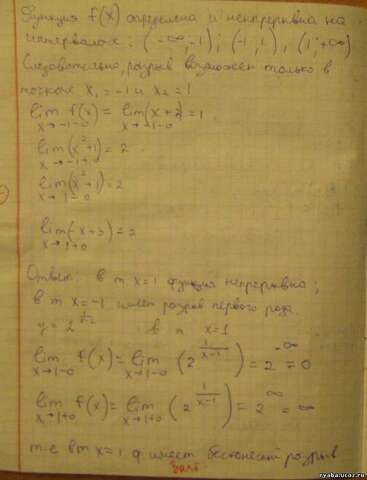 Функция f(x) определена и непрерывна на
интервалах: (-∞,-1); (-1,1), (1;+∞)
Следовательно, разрыв возможен только в
точках x₁=-1 и x₂=1
lim f(x) = lim(x+2)=1
x→-1-0 x→-1-0
lim(x²+1)=2
x→-1+0
lim(x²+1)=2
x→1-0
lim(-x+3)=2
x→1+0
Ответ: в т x=1 функция непрерывна;
в т x=-1 имеет разрыв первого рода
y=2 в т x=1
lim f(x)=lim (2^(1/(x-1)))=2^(-∞)=0
x→1-0 x→1-0
lim f(x)=lim (2^(1/(x-1)))=2^∞=∞
x→1+0 x→1+0
т-е в т x=1 ф имеет бесконечн разрыв
ryaba.ucoz.ru